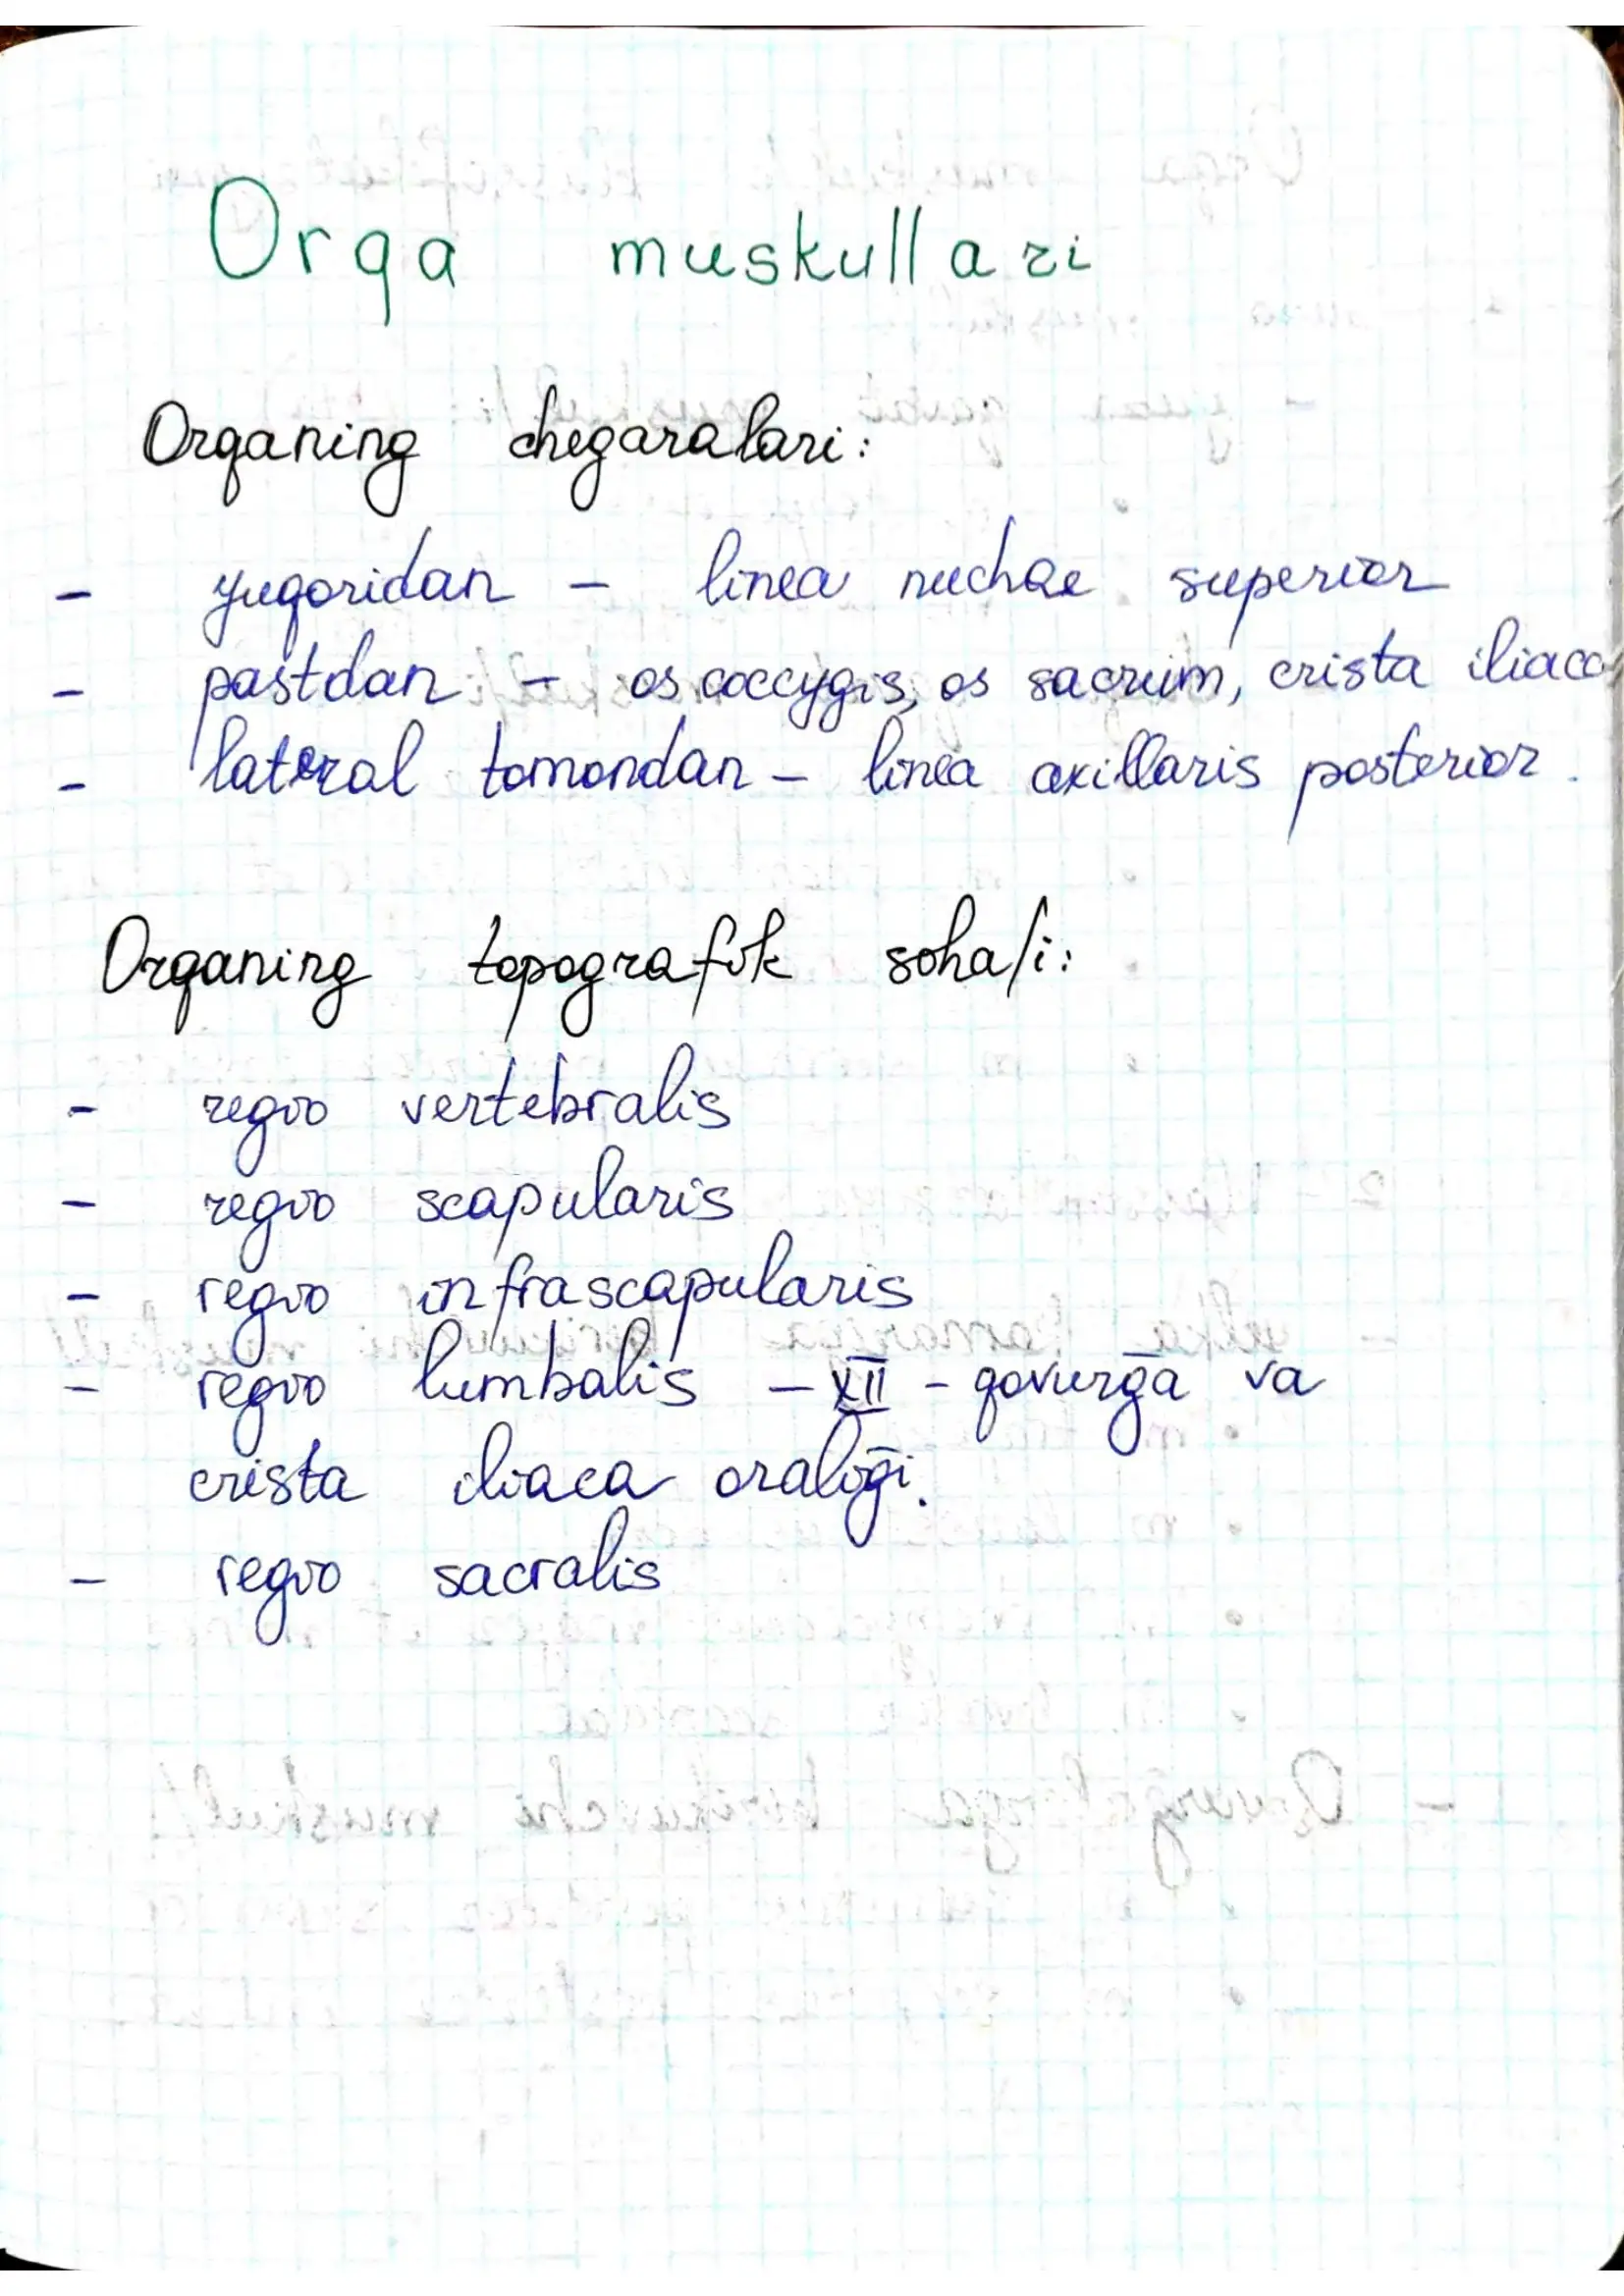 Orqa muskullari
Orqaning chegaralari:
- yuqoridan - linea nuchae superior
- pastdan - os coccygis, os sacrum, crista iliaca
- lateral tomondan - linea axillaris posterior.
Orqaning topografik soha/i:
- regio vertebralis
- regio scapularis
- regio infrascapularis
- regio lumbalis - XII - qovurḡa va
crista iliaca oraliḡi.
- regio sacralis